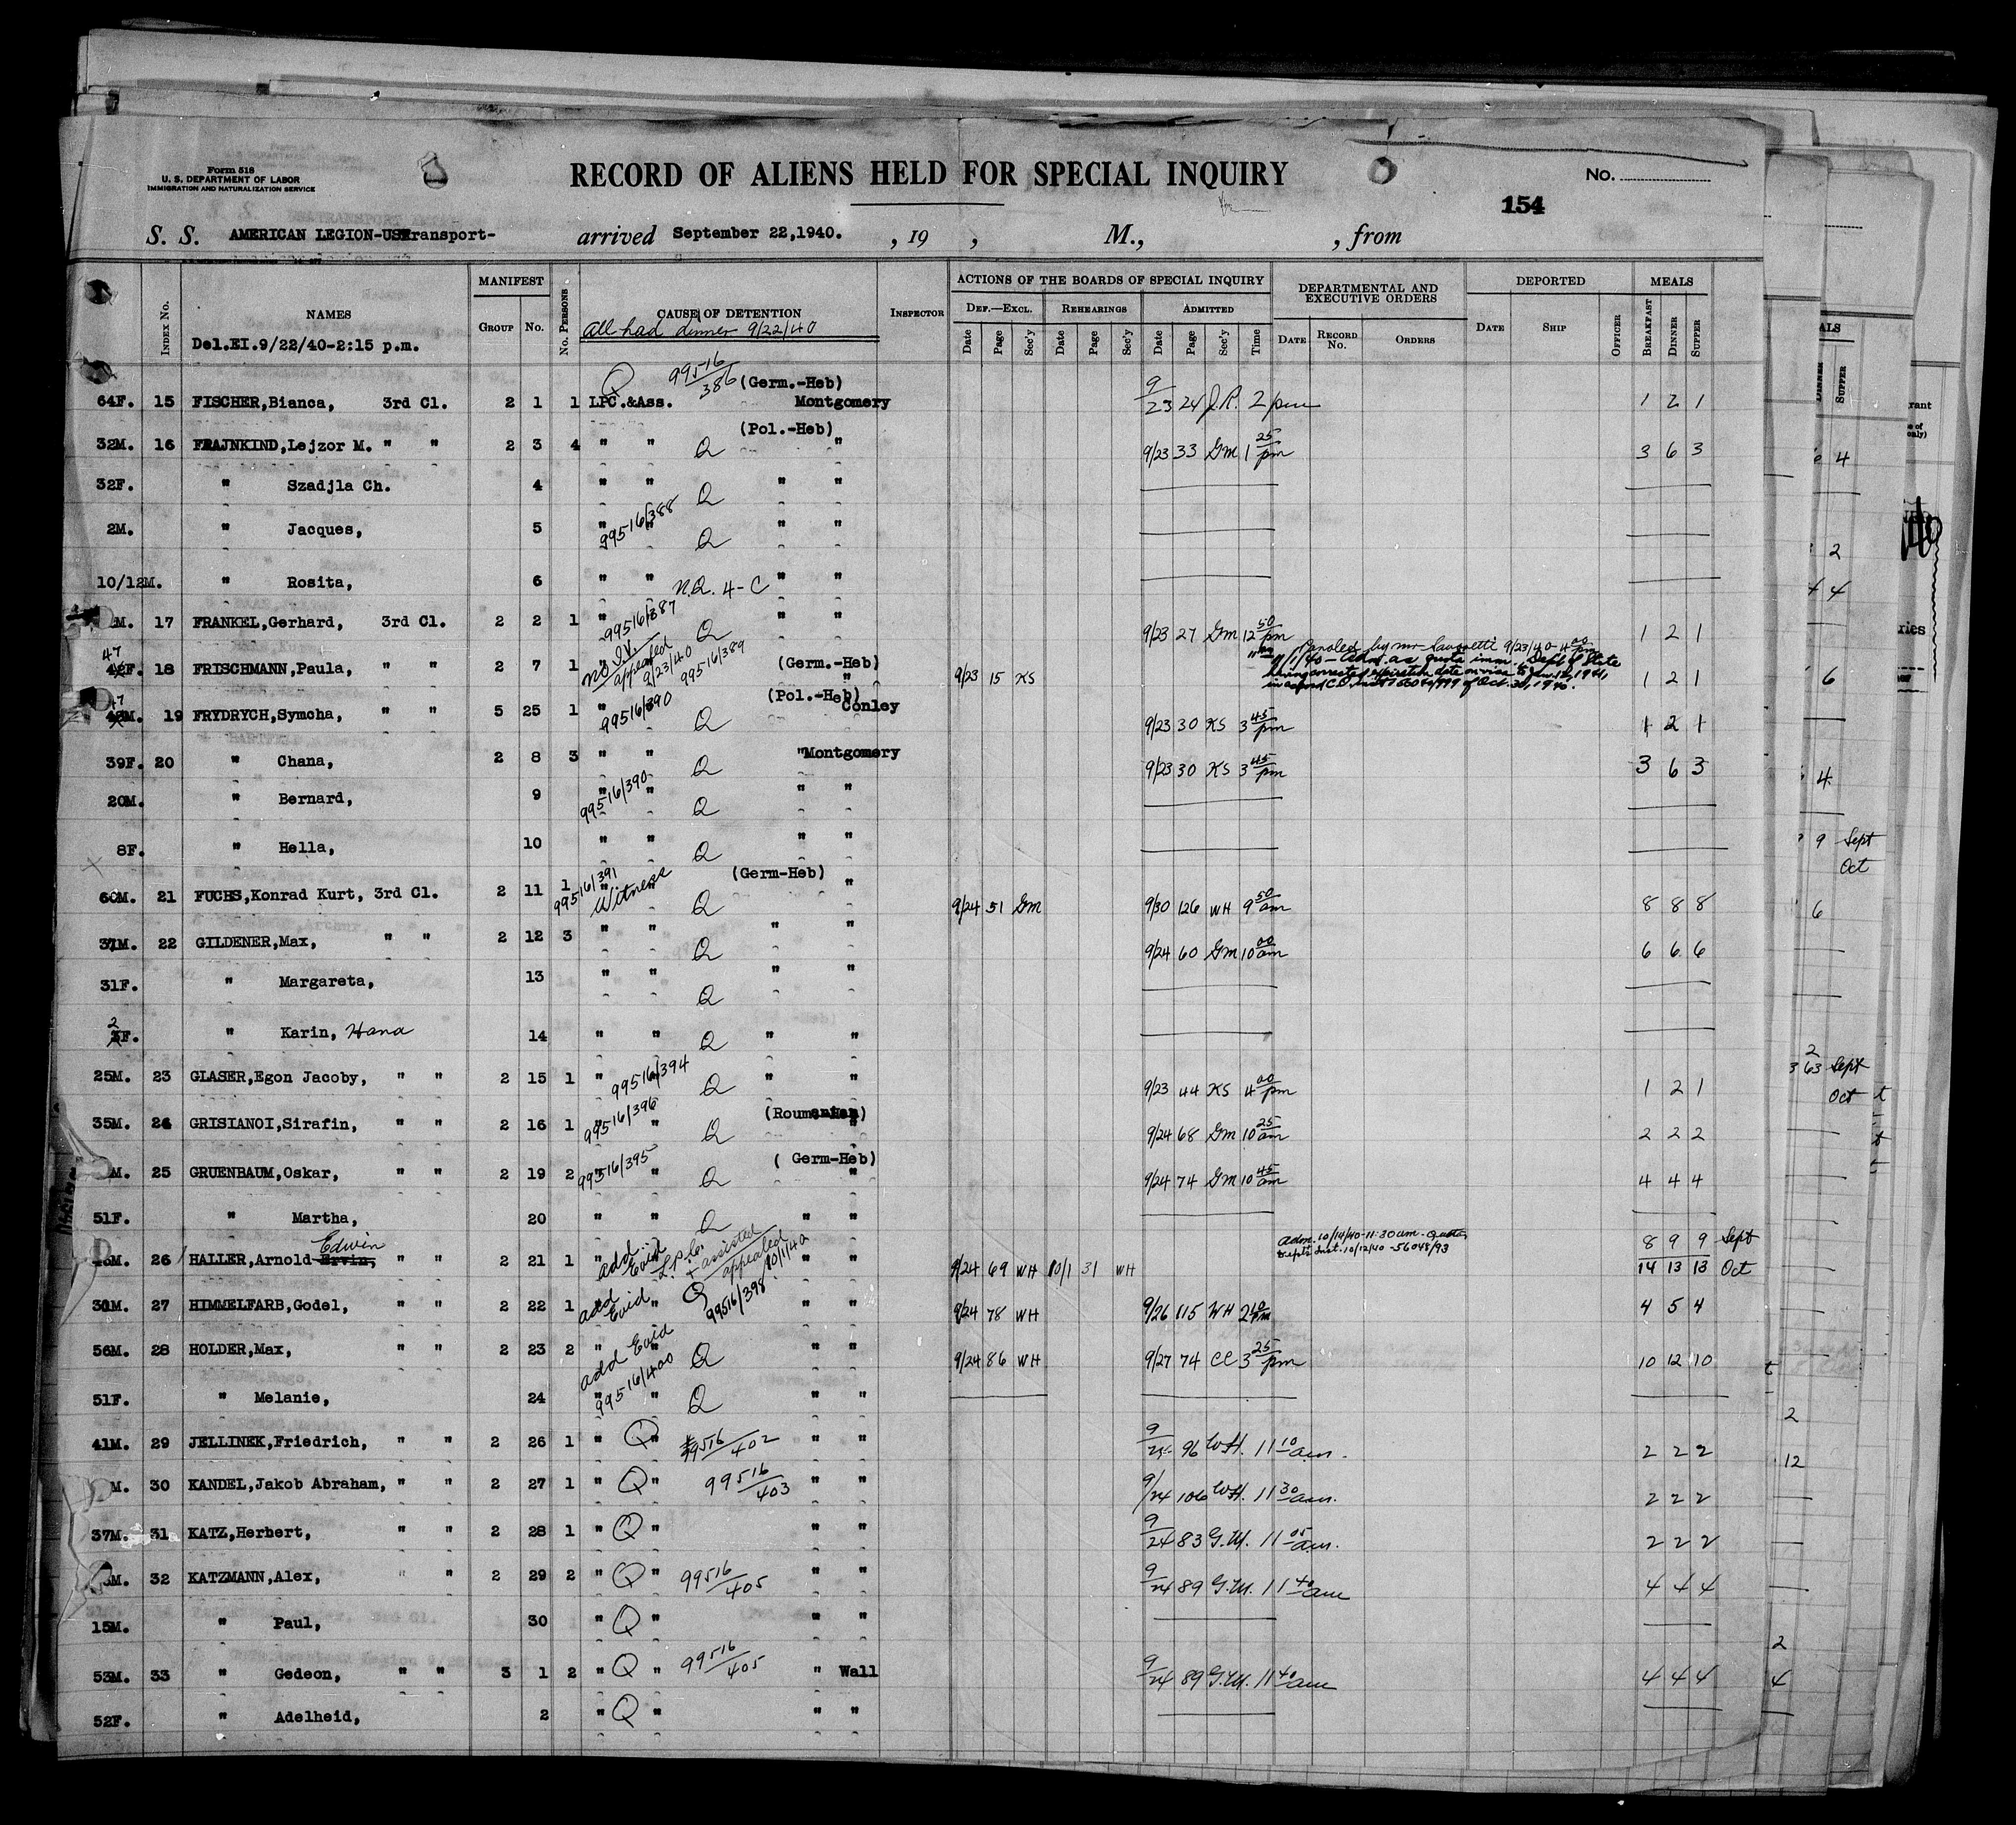 Form 518
U. S. DEPARTMENT OF LABOR
IMMIGRATION AND NATURALIZATION SERVICE
RECORD OF ALIENS HELD FOR SPECIAL INQUIRY
No.
154
S. S. AMERICAN LEGION-USTransport- arrived September 22,1940. , 19 , M., , from
Index No. NAMES MANIFEST Group No. No. Persons CAUSE OF DETENTION Inspector ACTIONS OF THE BOARDS OF SPECIAL INQUIRY DEPARTMENTAL AND EXECUTIVE ORDERS DEPORTED MEALS
Def.—Excl. Rehearings Admitted
Date Page Sec'y Date Page Sec'y Date Page Sec'y Time Date Record No. Orders Date Ship Officer Breakfast Dinner Supper
Del.EI.9/22/40-2:15 p.m. All had dinner 9/22/40
Q 99516/386 (Germ.-Heb)
64F. 15 FISCHER,Bianca, 3rd Cl. 2 1 1 LPC.&Ass. Montgomery 9/23 24 J.R. 2 pm 1 2 1
(Pol.-Heb)
32M. 16 FRAJNKIND,Lejzor M. " " 2 3 4 " " Q " 9/23 33 GM 1 25 pm 3 6 3
32F. " Szadjla Ch. 4 " " Q " "
2M. " Jacques, 5 " " 99516/388 Q " "
10/12M. " Rosita, 6 " " N.Q. 4-C " "
M. 17 FRANKEL,Gerhard, 3rd Cl. 2 2 1 " 99516/387 Q " " 9/23 27 GM 12 50 pm 1 2 1
Paroled by Mr 9/23/40-4 00 pm
47 42F. 18 FRISCHMANN,Paula, " " 2 7 1 no I.V. appealed 9/23/40 99516/389 (Germ.-Heb) " 9/23 15 KS 11/1/40-Adm. as quota imm. Dept of State having corrected expiration date on visa to Jan. 12, 1941, 1 2 1
(Pol.-Heb)
47 48M. 19 FRYDRYCH,Symcha, " " 5 25 1 " 99516/390 Q Conley 9/23 30 KS 3 45 pm 1 2 1
39F. 20 " Chana, 2 8 3 " " Q "Montgomery 9/23 30 KS 3 45 pm 3 6 3
20M. " Bernard, 9 " " 99516/390 Q " "
8F. " Hella, 10 " " Q " "
(Germ-Heb)
60M. 21 FUCHS,Konrad Kurt, 3rd Cl. 2 11 1 " 99516/391 Witness Q " 9/24 51 GM 9/30 126 WH 9 50 am 8 8 8
31M. 22 GILDENER,Max, " " 2 12 3 " " Q " " 9/24 60 GM 10 00 am 6 6 6
31F. " Margareta, 13 " " Q " "
2 3F. " Karin, Hana 14 " " Q " "
25M. 23 GLASER,Egon Jacoby, " " 2 15 1 " 99516/394 Q " " 9/23 44 KS 4 00 pm 1 2 1
35M. 24 GRISIANOI,Sirafin, " " 2 16 1 " 99516/396 Q (Roumanian) " 9/24 68 GM 10 25 am 2 2 2
( Germ-Heb)
M. 25 GRUENBAUM,Oskar, " " 2 19 2 " 99516/395 Q " 9/24 74 GM 10 45 am 4 4 4
51F. " Martha, 20 " " Q " "
Edwin
M. 26 HALLER,Arnold Ervin, " " 2 21 1 add Evid L.p.c. + assisted appealed 10/1/40 " " 9/24 69 WH 10/1 31 WH Adm. 10/14/40-11:30am-Quota, Dept's Inst. 10/12/40-56048/93 8 9 9 Sept
14 13 13 Oct
30M. 27 HIMMELFARB,Godel, " " 2 22 1 add Evid Q 99516/398 " " 9/24 78 WH 9/26 115 WH 2 10 PM 4 5 4
56M. 28 HOLDER,Max, " " 2 23 2 add Evid Q " " 9/24 86 WH 9/27 74 CC 3 25 pm 10 12 10
51F. " Melanie, 24 99516/400 Q " "
41M. 29 JELLINEK,Friedrich, " " 2 26 1 " Q 99516/402 " " 9/24 96 W.H. 11 10 am. 2 2 2
M. 30 KANDEL,Jakob Abraham, " " 2 27 1 " Q " 99516/403 " " 9/24 106 W.H. 11 30 am. 2 2 2
37M. 31 KATZ,Herbert, " " 2 28 1 " Q " " " 9/24 83 G.M. 11 05 am. 2 2 2
M. 32 KATZMANN,Alex, " " 2 29 2 " Q " 99516/405 " " 9/24 89 G.M. 11 40 am 4 4 4
15M. " Paul, 30 " Q " " "
53M. 33 " Gedeon, " " 3 1 2 " Q " 99516/405 " Wall 9/24 89 G.M. 11 40 am 4 4 4
52F. " Adelheid, 2 " Q " " "